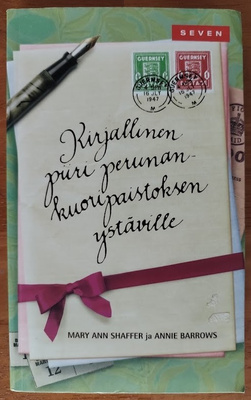 SEVEN
GUERNSEY
GUERNSEY
16 JLY
1947
Kirjallinen
piiri perunan-
kuoripaistoksen
ystäville
MARY ANN SHAFFER ja ANNIE BARROWS
12